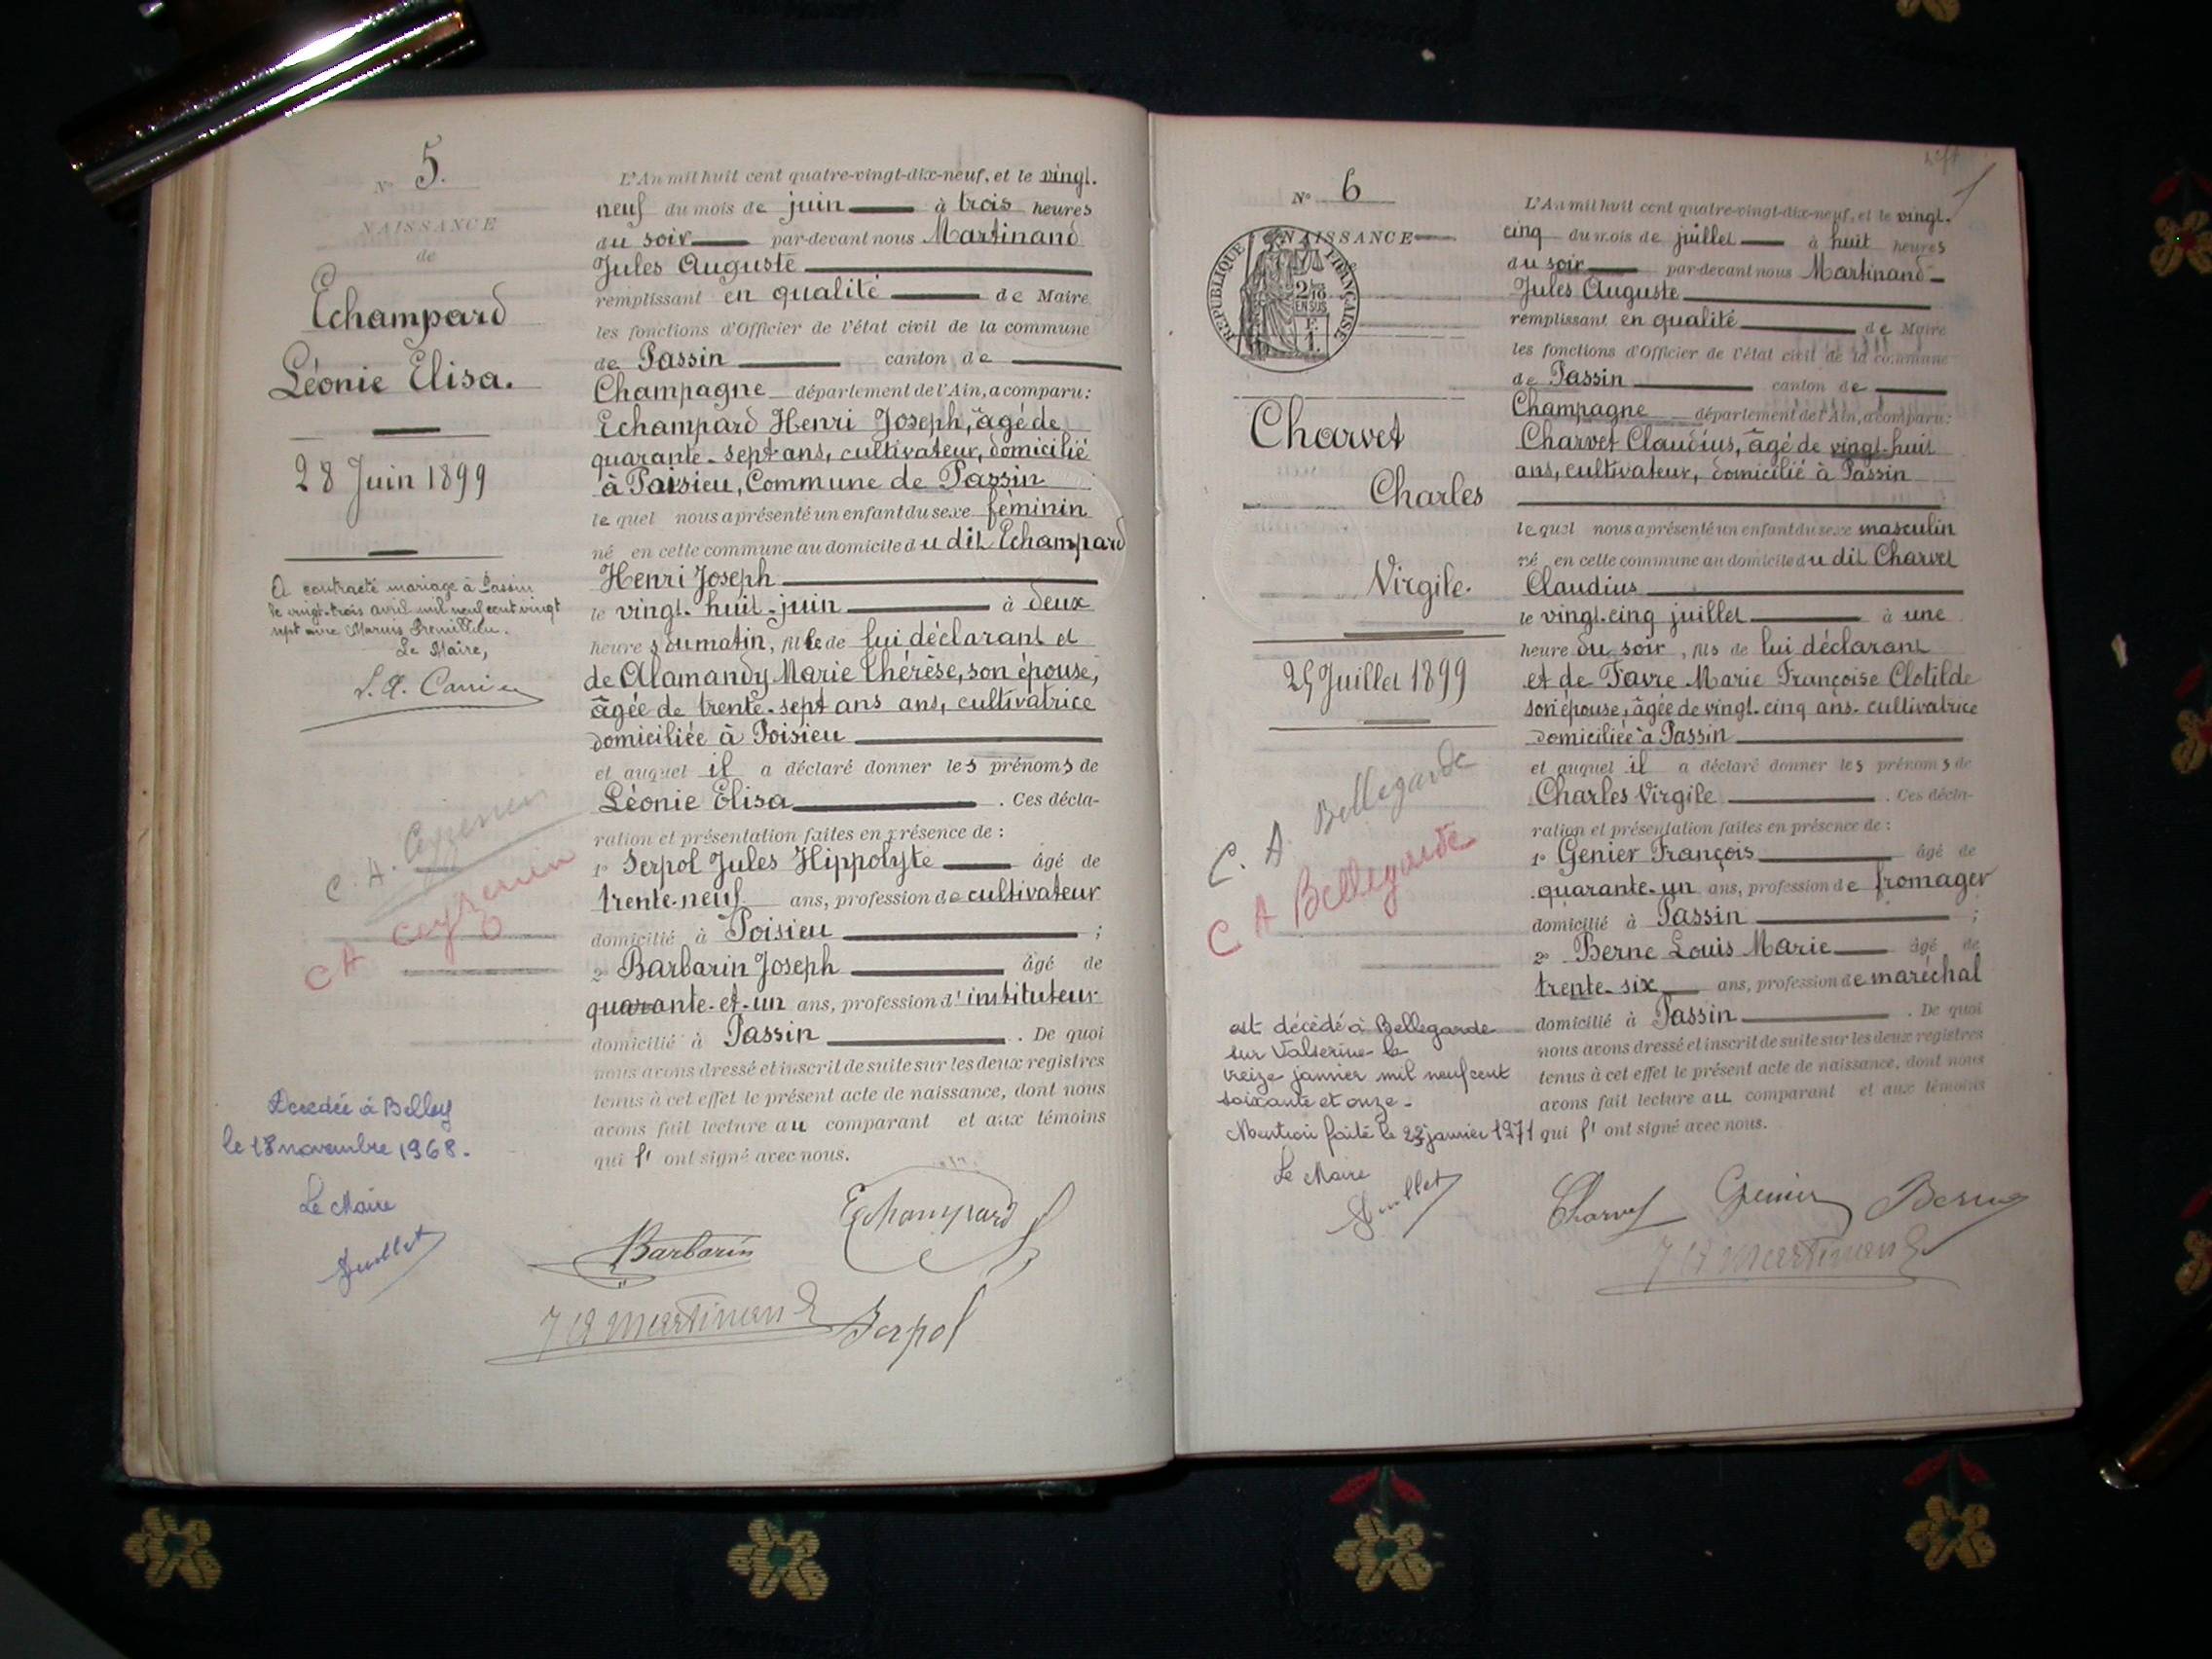 N° 5.
NAISSANCE
de
Echampard
Léonie Elisa.
28 Juin 1899
A contracté mariage à Passin
le vingt-trois avril mil neuf cent vingt
sept avec Marius
Le Maire,
Décédée à Belley
le 18 novembre 1968.
Le Maire
C. A. Ceyzerieu
CA Ceyzerieu
L'An mil huit cent quatre-vingt-dix-neuf, et le vingt-
neuf du mois de juin à trois heures
du soir par-devant nous Martinand
Jules Auguste
remplissant en qualité de Maire
les fonctions d'Officier de l'état civil de la commune
de Passin canton de
Champagne département de l'Ain, a comparu:
Echampard Henri Joseph, âgé de
quarante-sept ans, cultivateur, domicilié
à Poisieu, Commune de Passin
lequel nous a présenté un enfant du sexe féminin
né en cette commune au domicile du dit Echampard
Henri Joseph
le vingt-huit-juin à deux
heures du matin, fille de lui déclarant et
de Alamandy Marie Thérèse, son épouse,
âgée de trente-sept ans ans, cultivatrice
domiciliée à Poisieu
et auquel il a déclaré donner les prénoms de
Léonie Elisa. Ces décla-
ration et présentation faites en présence de :
1° Serpol Jules Hippolyte âgé de
trente-neuf ans, profession de cultivateur
domicilié à Poisieu ;
2° Barbarin Joseph âgé de
quarante-et-un ans, profession d'instituteur
domicilié à Passin. De quoi
nous avons dressé et inscrit de suite sur les deux registres
tenus à cet effet le présent acte de naissance, dont nous
avons fait lecture au comparant et aux témoins
qui l' ont signé avec nous.
Echampard
Barbarin
J A Martinand Serpol
N° 6
NAISSANCE
REPUBLIQUE FRANÇAISE
2/10
EN SUS
Charvet
Charles
Virgile.
25 Juillet 1899
C. A. Bellegarde
C A Bellegarde
est décédé à Bellegarde
sur Valserine le
treize janvier mil neuf cent
soixante et onze.
Mention faite le 23 janvier 1971
Le Maire
L'An mil huit cent quatre-vingt-dix-neuf, et le vingt-
cinq du mois de juillet à huit heures
du soir par-devant nous Martinand
Jules Auguste
remplissant en qualité de Maire
les fonctions d'Officier de l'état civil de la commune
de Passin canton de
Champagne département de l'Ain, a comparu:
Charvet Claudius, âgé de vingt-huit
ans, cultivateur, domicilié à Passin
lequel nous a présenté un enfant du sexe masculin
né en cette commune au domicile du dit Charvet
Claudius
le vingt-cinq juillet à une
heure du soir, fils de lui déclarant
et de Favre Marie Françoise Clotilde
son épouse, âgée de vingt-cinq ans. cultivatrice
domiciliée à Passin
et auquel il a déclaré donner les prénoms de
Charles Virgile. Ces décla-
ration et présentation faites en présence de :
1° Genier François âgé de
quarante-un ans, profession de fromager
domicilié à Passin ;
2° Berne Louis Marie âgé de
trente-six ans, profession de maréchal
domicilié à Passin. De quoi
nous avons dressé et inscrit de suite sur les deux registres
tenus à cet effet le présent acte de naissance, dont nous
avons fait lecture au comparant et aux témoins
qui l' ont signé avec nous.
Charvet Genier Berne
J A Martinand